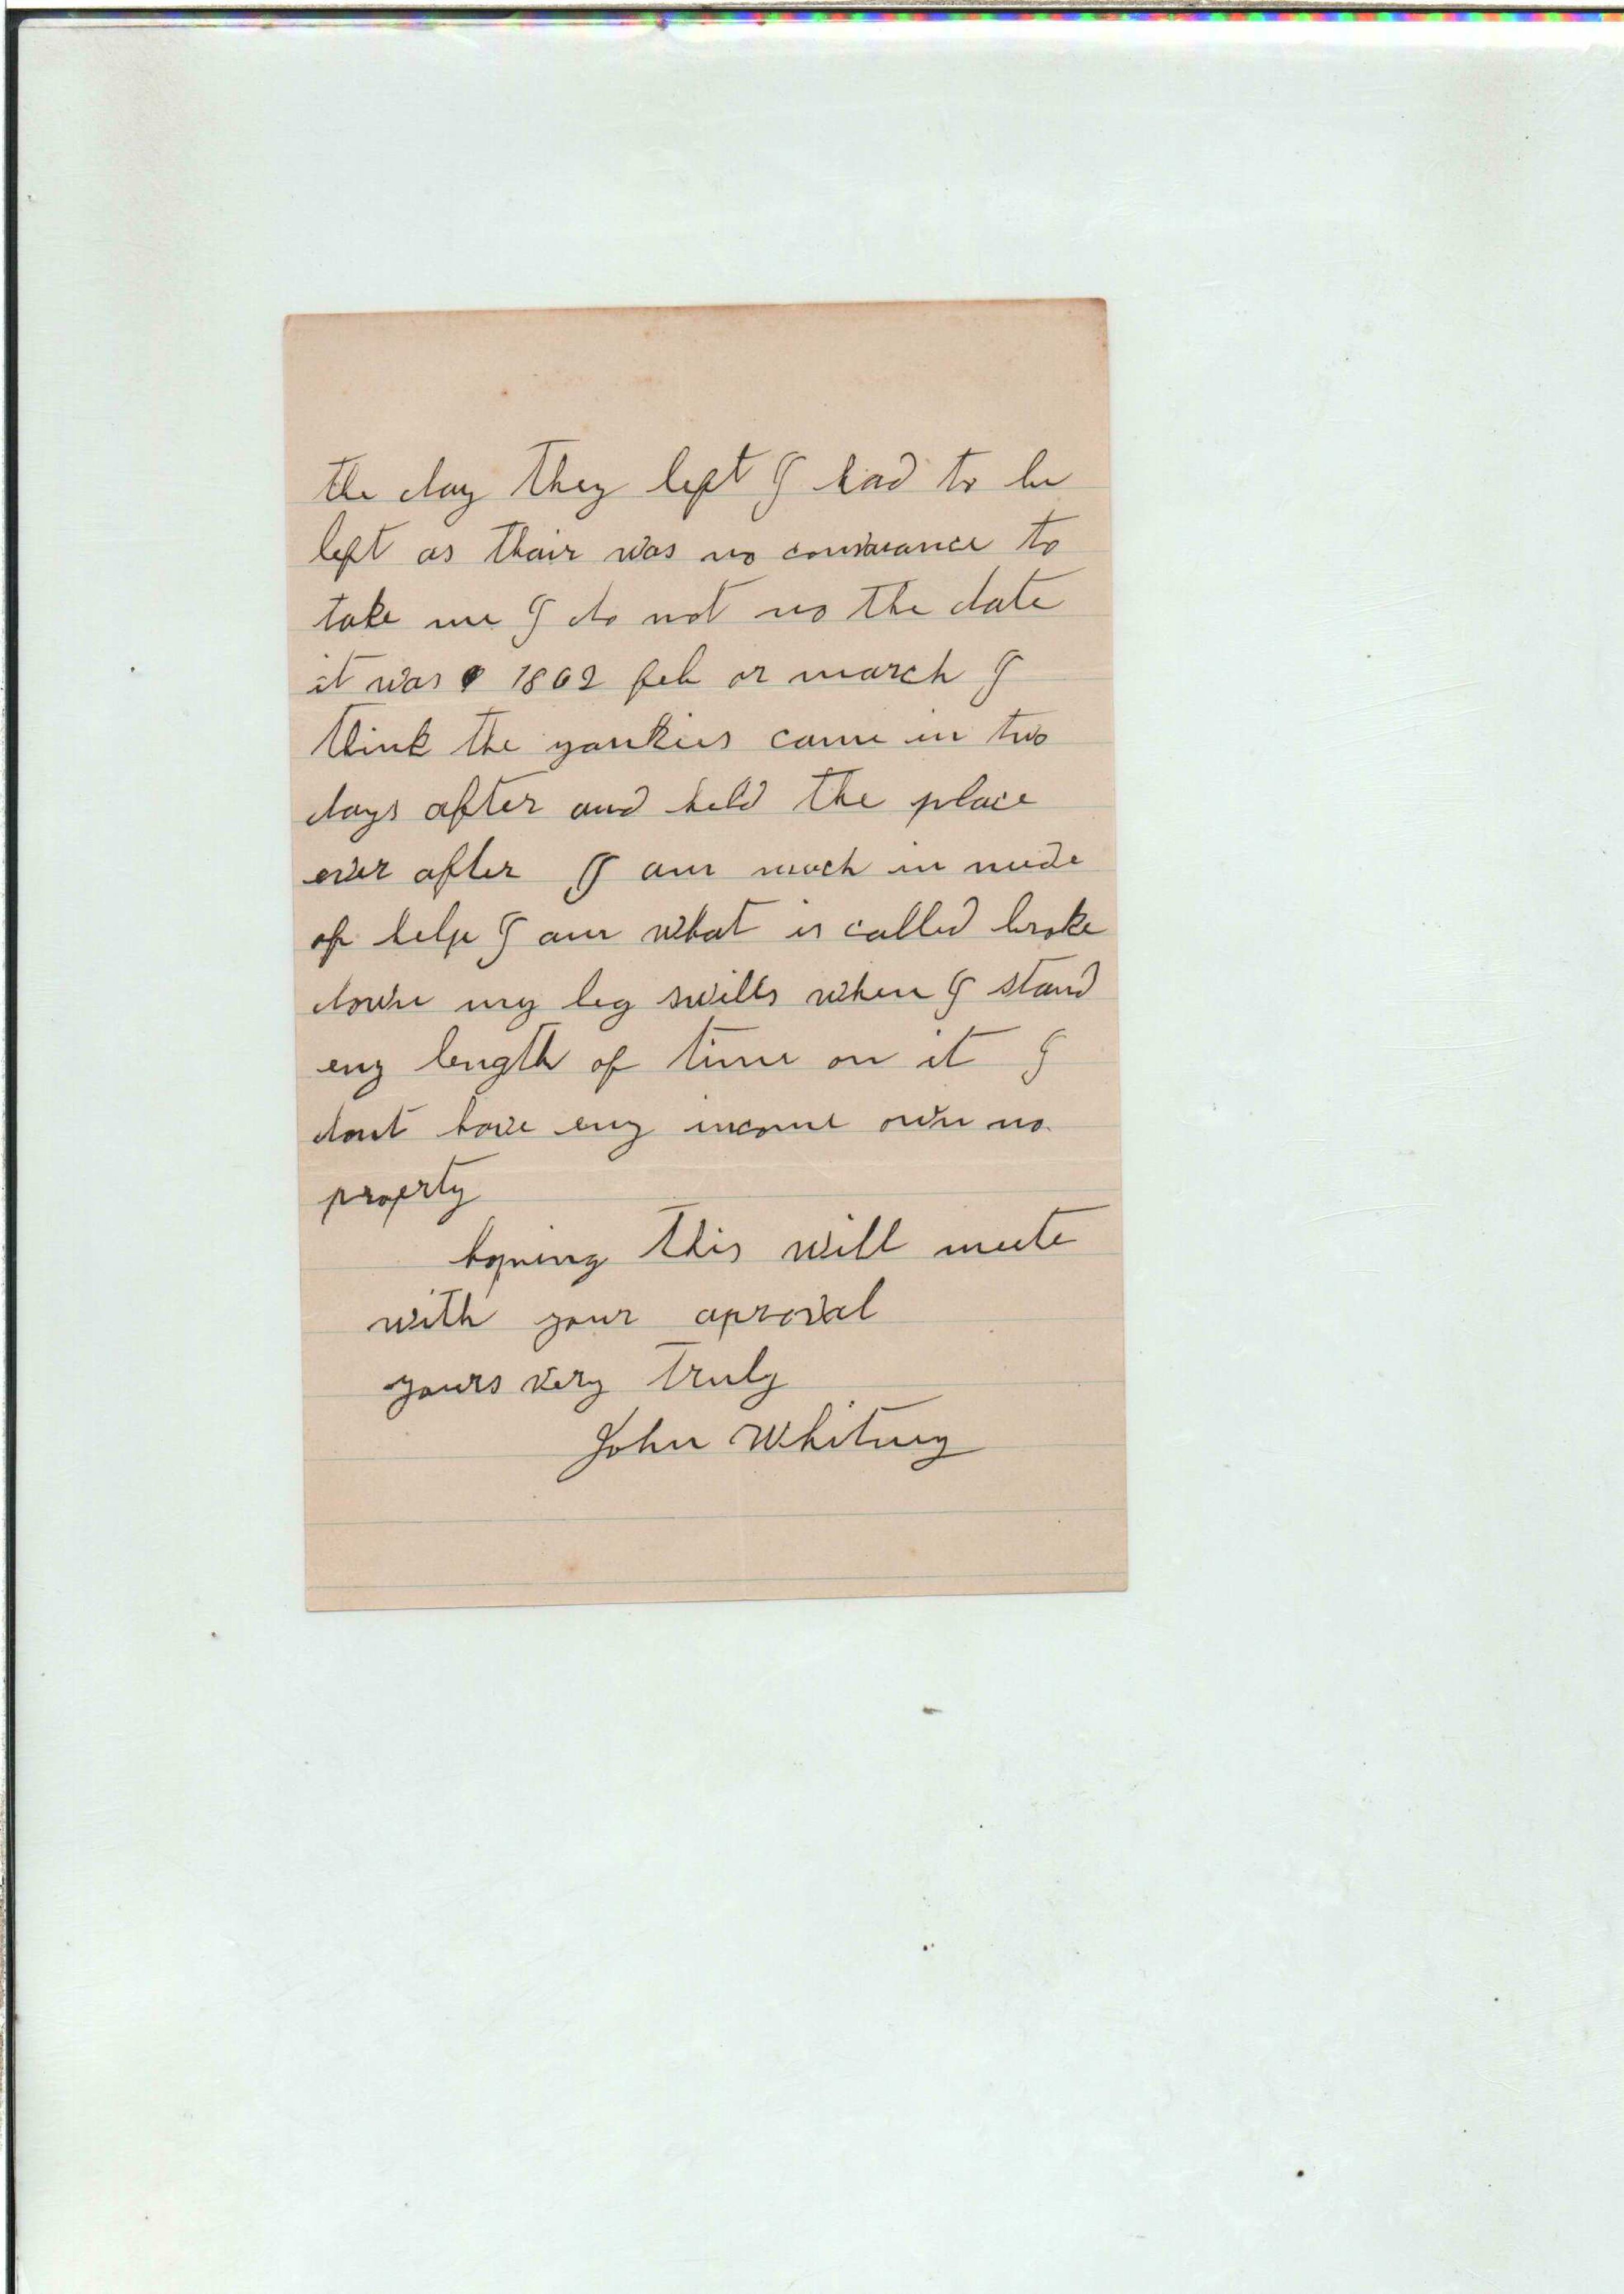 the day they left I had to be
left as thair was no convaance to
take me I do not no the date
it was 1862 feb or march I
think the yankies came in two
days after and held the place
ever after I am much in neede
of help I am what is called broke
down my leg swills when I stand
eny length of time on it I
dont have eny income own no
property
hopeing this will meete
with your aproval
yours very truly
John Whitney